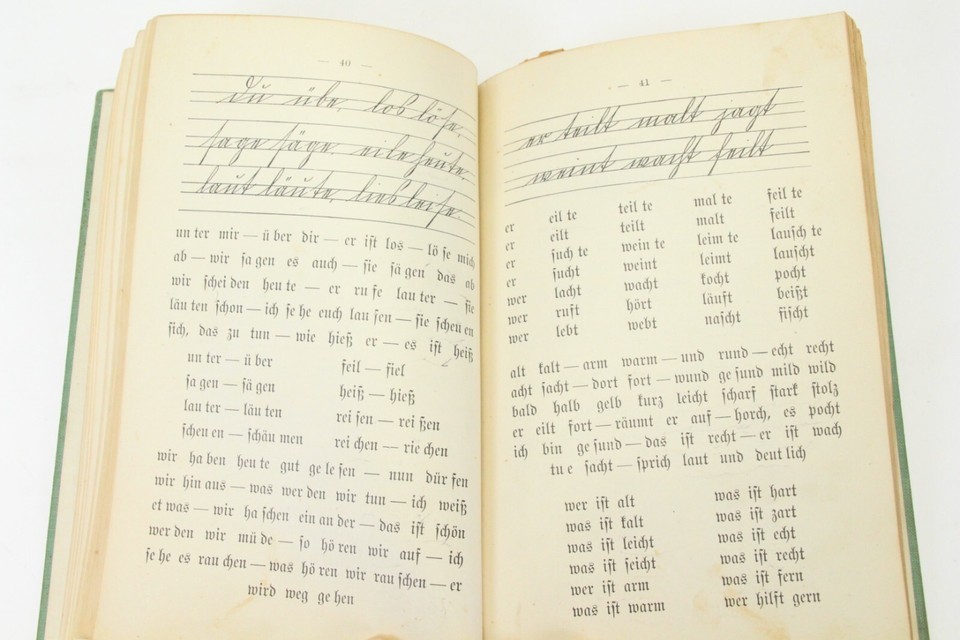 — 40 —
du übe, los löse,
sage säge, eile heute,
laut läute, lies leise,
un ter mir — ü ber dir — er ist los — lö se mich
ab — wir sa gen es auch — sie sä gen das ab
wir schei den heu te — er ru fe lau ter — sie
läu ten schon — ich se he euch lau fen — sie scheu en
sich, das zu tun — wie hieß er — es ist heiß
un ter — ü ber feil — fiel
sa gen — sä gen heiß — hieß
lau ter — läu ten rei sen — rei ßen
scheu en — schäu men rei chen — rie chen
wir ha ben heu te gut ge le sen — nun dür fen
wir hin aus — was wer den wir tun — ich weiß
et was — wir ha schen ein an der — das ist schön
wer den wir mü de — so hö ren wir auf — ich
se he es rau chen — was hö ren wir rau schen — er
wird weg ge hen
— 41 —
er teilt malt jagt
weint wacht feilt
er eil te teil te mal te feil te
er eilt teilt malt feilt
er such te wein te leim te lausch te
er sucht weint leimt lauscht
wer lacht wacht kocht pocht
wer ruft hört läuft beißt
wer lebt webt nascht fischt
alt kalt — arm warm — und rund — echt recht
acht sacht — dort fort — wund ge sund mild wild
bald halb gelb kurz leicht scharf stark stolz
er eilt fort — räumt er auf — horch, es pocht
ich bin ge sund — das ist recht — er ist wach
tu e sacht — sprich laut und deut lich
wer ist alt was ist hart
was ist kalt was ist zart
was ist leicht was ist echt
was ist seicht was ist recht
wer ist arm was ist fern
was ist warm wer hilft gern